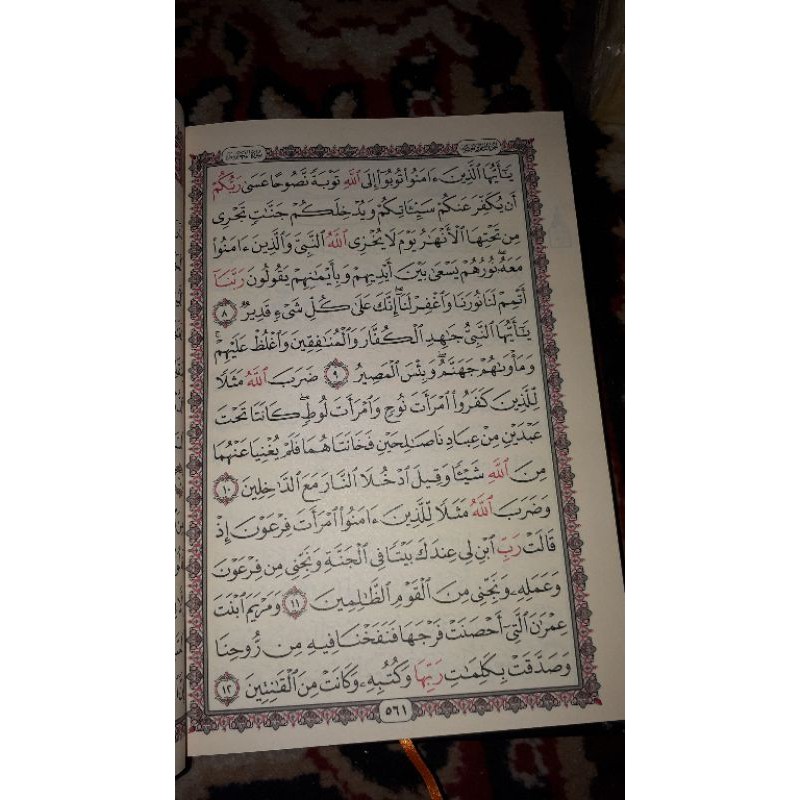 يَٰٓأَيُّهَا ٱلَّذِينَ ءَامَنُوا۟ تُوبُوٓا۟ إِلَى ٱللَّهِ تَوْبَةً نَّصُوحًا عَسَىٰ رَبُّكُمْ
أَن يُكَفِّرَ عَنكُمْ سَيِّـَٔاتِكُمْ وَيُدْخِلَكُمْ جَنَّٰتٍ تَجْرِى
مِن تَحْتِهَا ٱلْأَنْهَٰرُ يَوْمَ لَا يُخْزِى ٱللَّهُ ٱلنَّبِىَّ وَٱلَّذِينَ ءَامَنُوا۟
مَعَهُۥ نُورُهُمْ يَسْعَىٰ بَيْنَ أَيْدِيهِمْ وَبِأَيْمَٰنِهِمْ يَقُولُونَ رَبَّنَآ
أَتْمِمْ لَنَا نُورَنَا وَٱغْفِرْ لَنَآ إِنَّكَ عَلَىٰ كُلِّ شَىْءٍ قَدِيرٌ ٨
يَٰٓأَيُّهَا ٱلنَّبِىُّ جَٰهِدِ ٱلْكُفَّارَ وَٱلْمُنَٰفِقِينَ وَٱغْلُظْ عَلَيْهِمْ ۚ
وَمَأْوَىٰهُمْ جَهَنَّمُ ۖ وَبِئْسَ ٱلْمَصِيرُ ٩ ضَرَبَ ٱللَّهُ مَثَلًا
لِّلَّذِينَ كَفَرُوا۟ ٱمْرَأَتَ نُوحٍ وَٱمْرَأَتَ لُوطٍ ۖ كَانَتَا تَحْتَ
عَبْدَيْنِ مِنْ عِبَادِنَا صَٰلِحَيْنِ فَخَانَتَاهُمَا فَلَمْ يُغْنِيَا عَنْهُمَا
مِنَ ٱللَّهِ شَيْـًٔا وَقِيلَ ٱدْخُلَا ٱلنَّارَ مَعَ ٱلدَّٰخِلِينَ ١٠
وَضَرَبَ ٱللَّهُ مَثَلًا لِّلَّذِينَ ءَامَنُوا۟ ٱمْرَأَتَ فِرْعَوْنَ إِذْ
قَالَتْ رَبِّ ٱبْنِ لِى عِندَكَ بَيْتًا فِى ٱلْجَنَّةِ وَنَجِّنِى مِن فِرْعَوْنَ
وَعَمَلِهِۦ وَنَجِّنِى مِنَ ٱلْقَوْمِ ٱلظَّٰلِمِينَ ١١ وَمَرْيَمَ ٱبْنَتَ
عِمْرَٰنَ ٱلَّتِىٓ أَحْصَنَتْ فَرْجَهَا فَنَفَخْنَا فِيهِ مِن رُّوحِنَا
وَصَدَّقَتْ بِكَلِمَٰتِ رَبِّهَا وَكُتُبِهِۦ وَكَانَتْ مِنَ ٱلْقَٰنِتِينَ ١٢
٥٦١